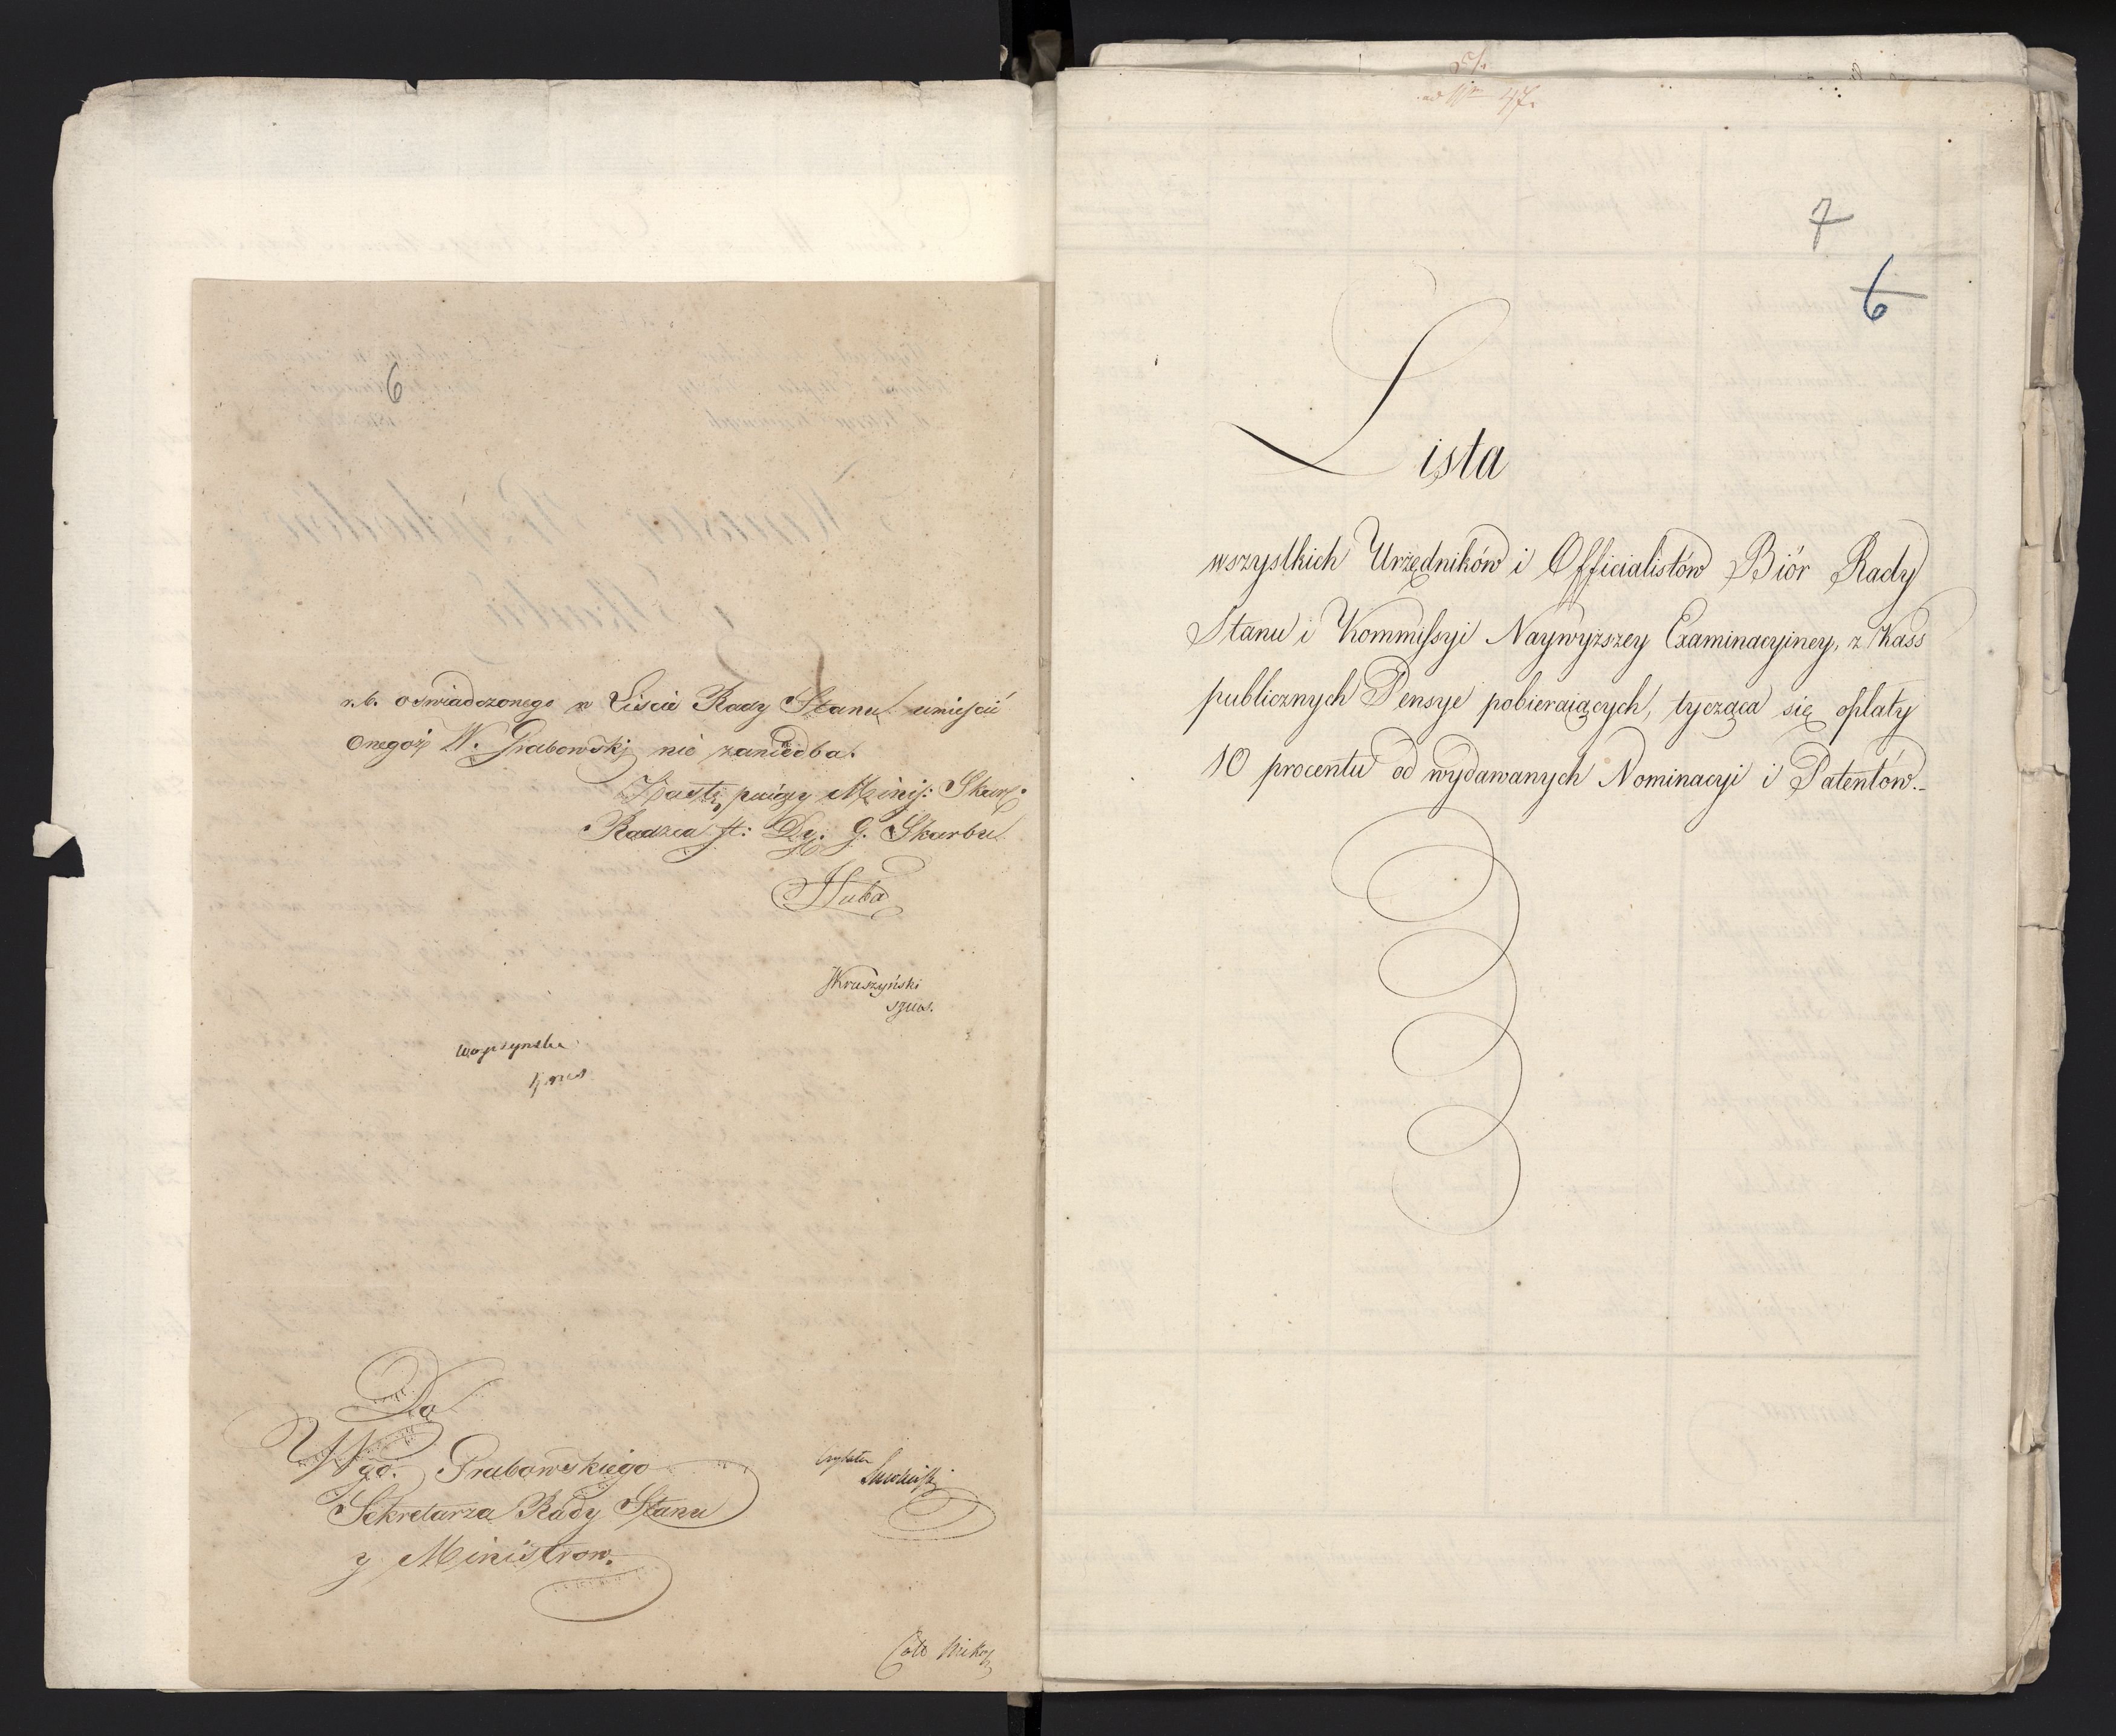 6
r.b. oswiadczonego w Liście Rady Stanu umieścić
onegoż W. Grabowski nie zaniedba.
Zastępuiący Minis: Skarb:
Radzca St: Dy: G. Skarbu
Kruszyński
Do
Wgo. Grabowskiego
Sekretarza Rady Stanu
y Ministrow.
ad Nr 47.
7
6
Lista
wszystkich Urzędników i Officialistów Biór Rady
Stanu i Kommissyi Naywyższey Examinacyiney, z Kass
publicznych Pensye pobieraiących, tycząca się opłaty
10 procentu od wydawanych Nominacyi i Patentów.